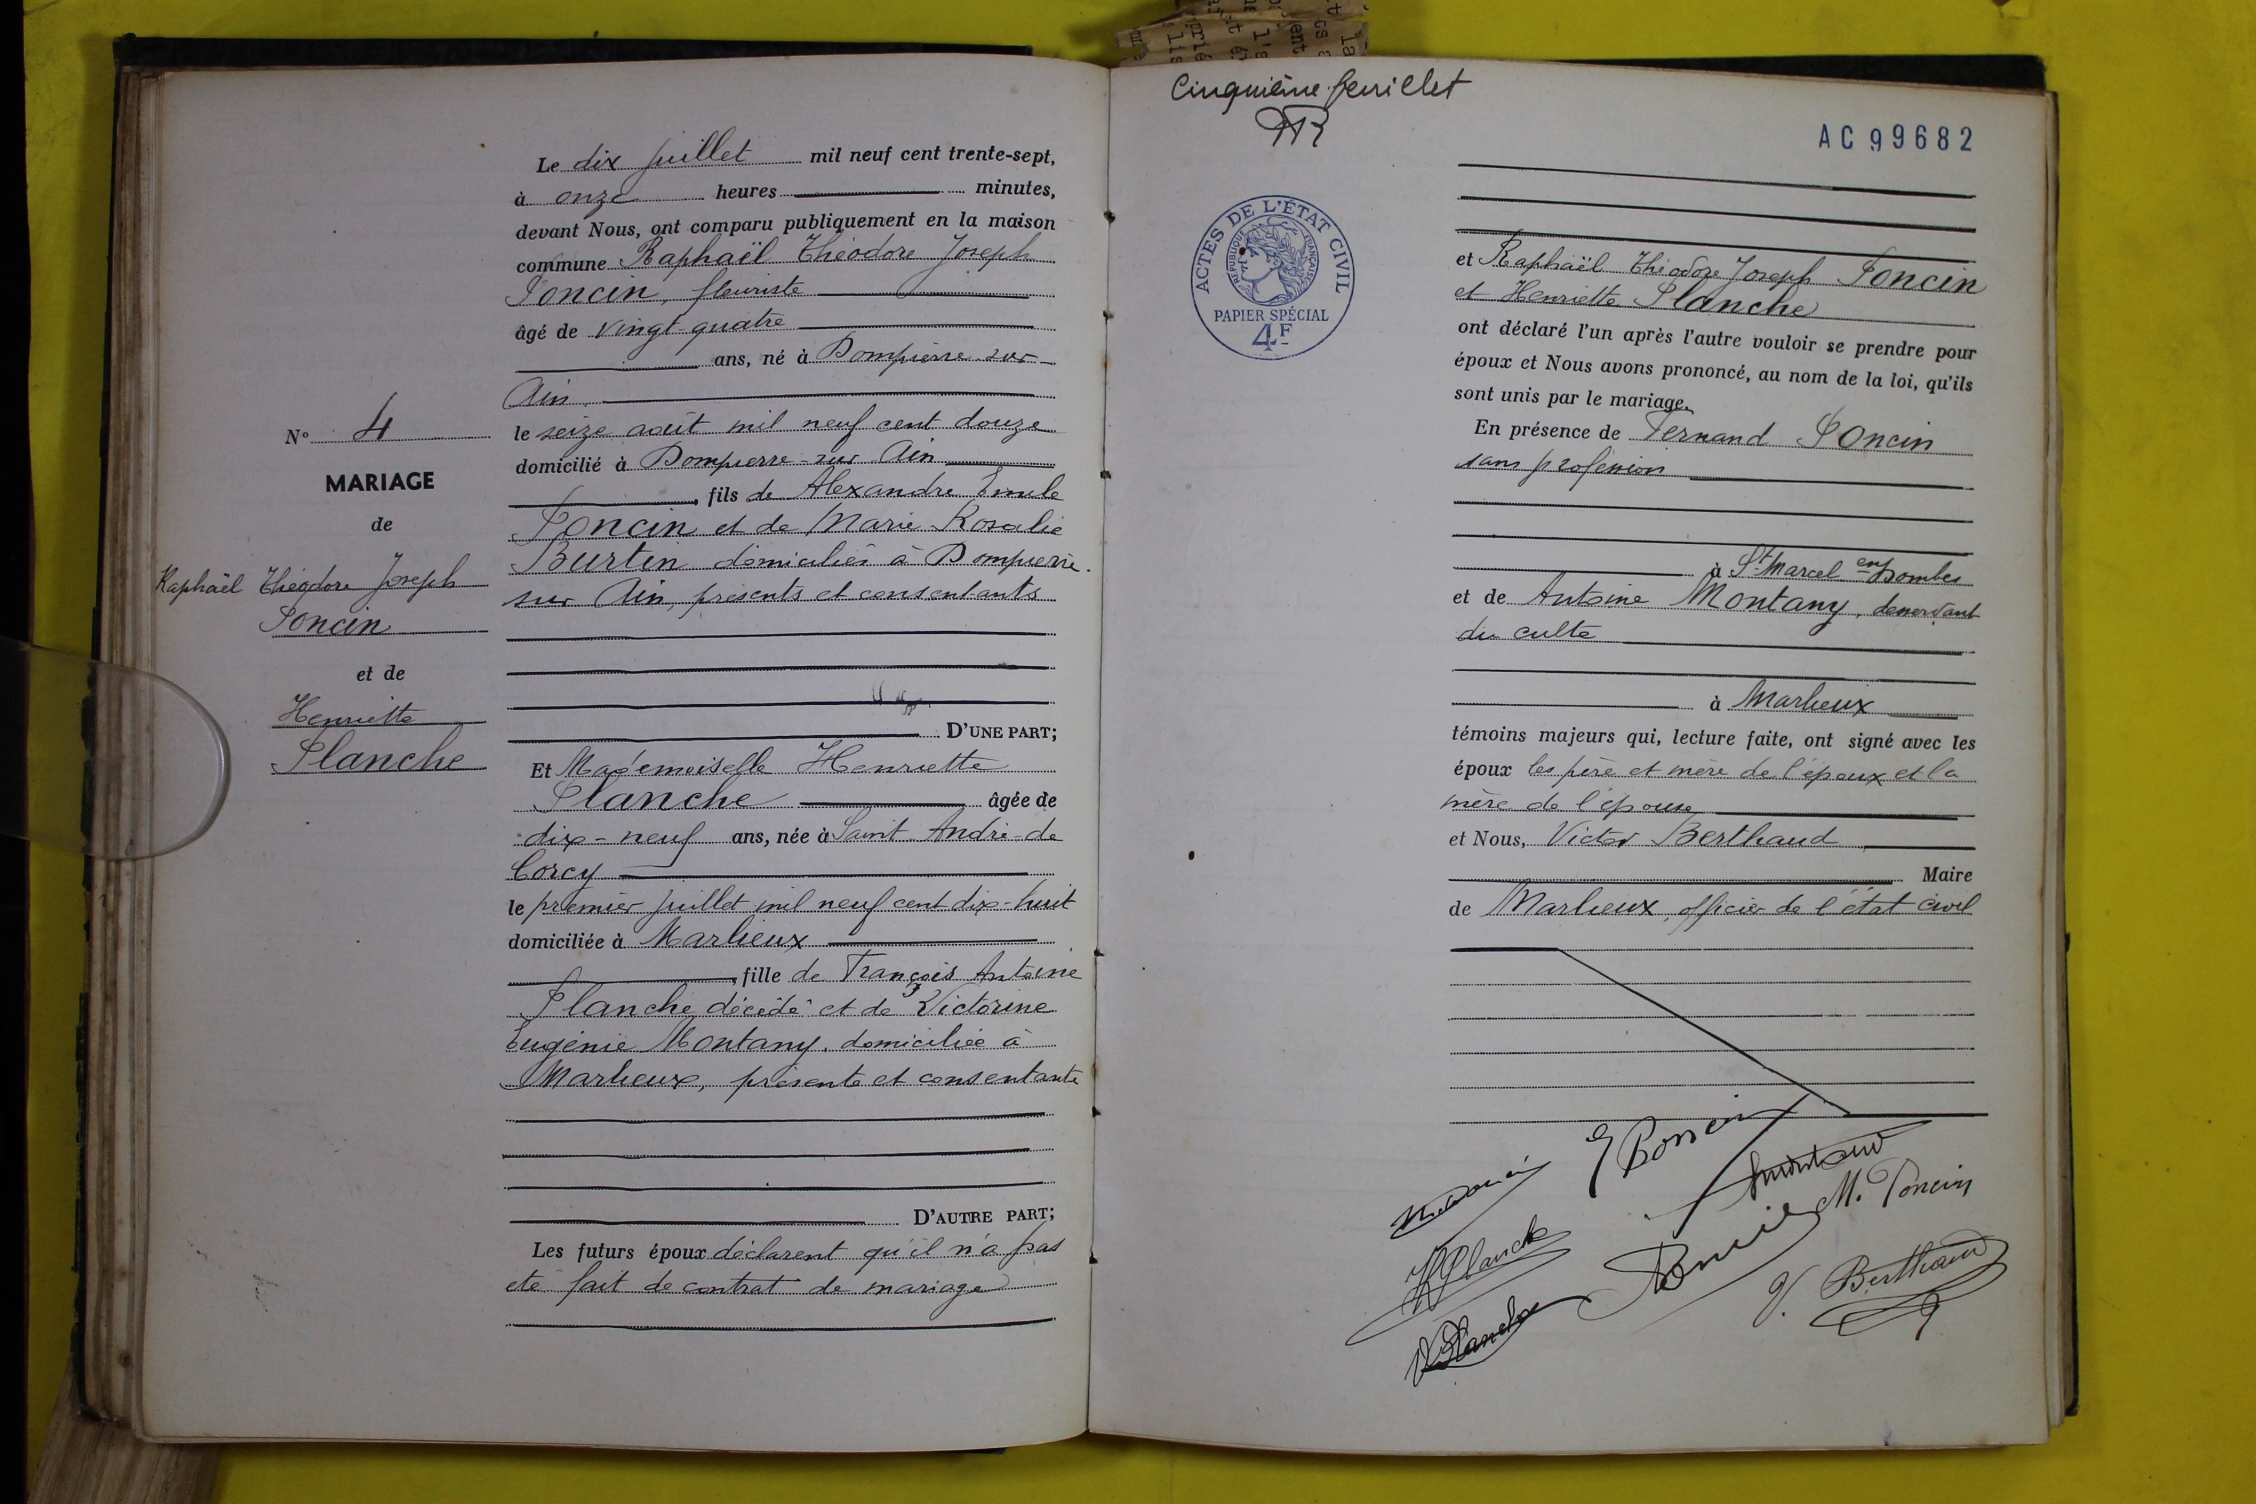 N° 4
MARIAGE
de
Raphaël Théodore Joseph
Poncin
et de
Henriette
Planche
Le dix juillet mil neuf cent trente-sept,
à onze heures minutes,
devant Nous, ont comparu publiquement en la maison
commune Raphaël Théodore Joseph
Poncin, fleuriste
âgé de vingt-quatre
ans, né à Dompierre-sur-
Ain
le seize août mil neuf cent douze
domicilié à Dompierre-sur Ain
, fils de Alexandre Emile
Poncin et de Marie Rosalie
Burtin domiciliés à Dompierre-
sur Ain, présents et consentants
D'UNE PART;
Et Mademoiselle Henriette
Planche âgée de
dix-neuf ans, née à Saint André-de
Corcy
le premier juillet mil neuf cent dix-huit
domiciliée à Marlieux
, fille de François Antoine
Planche, décédé et de Victorine
Eugénie Montany, domiciliée à
Marlieux, présente et consentante
D'AUTRE PART;
Les futurs époux déclarent qu'il n'a pas
été fait de contrat de mariage
Cinquième feuillet
AC 99682
ACTES DE L'ÉTAT CIVIL
RÉPUBLIQUE FRANÇAISE
PAPIER SPÉCIAL
4F
et Raphaël Théodore Joseph Poncin
et Henriette Planche
ont déclaré l'un après l'autre vouloir se prendre pour
époux et Nous avons prononcé, au nom de la loi, qu'ils
sont unis par le mariage.
En présence de Fernand Poncin
sans profession
à St Marcel en Dombes
et de Antoine Montany, desservant
du culte
à Marlieux
témoins majeurs qui, lecture faite, ont signé avec les
époux les père et mère de l'époux et la
mère de l'épouse
et Nous, Victor Berthaud
Maire
de Marlieux, officier de l'état civil
E Poncin
M. Poncin
H Planche
V. Berthaud
V Planche